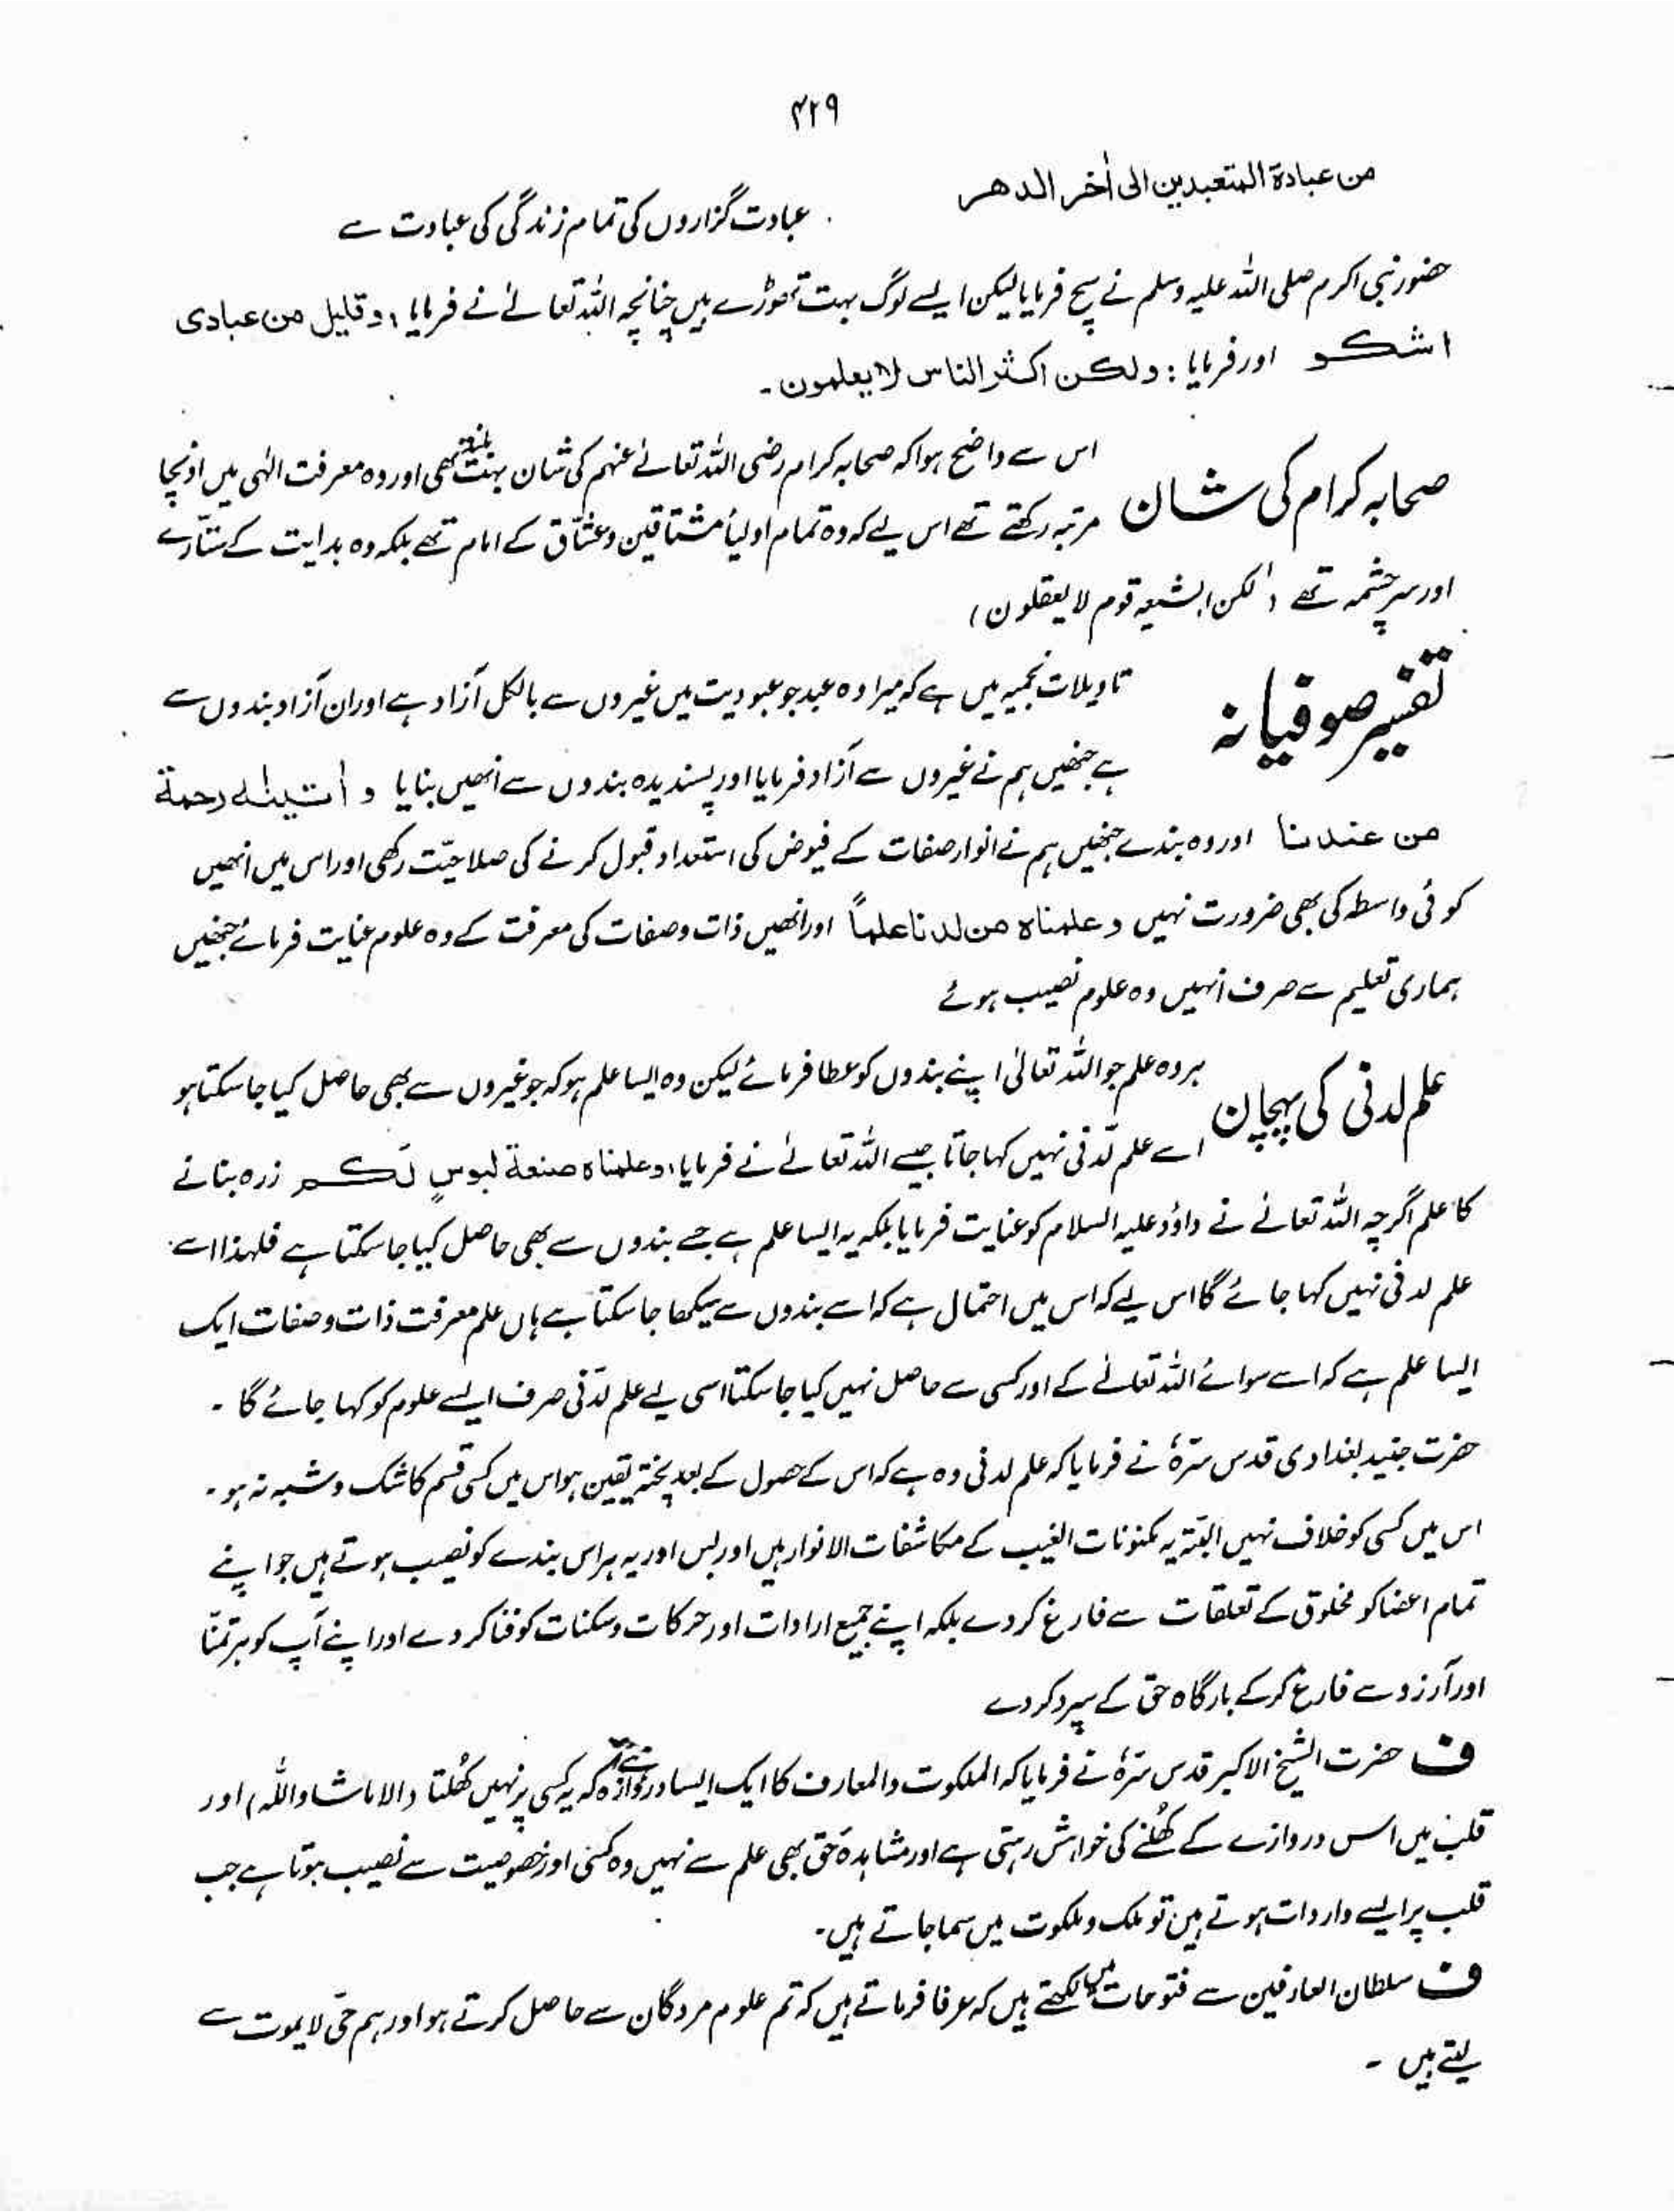 ۴۲۹
من عبادة المتعبدين الی اٰخر الدهر
عبادت گزاروں کی تمام زندگی کی عبادت سے
حضور نبی اکرم صلی اللہ علیہ وسلم نے سچ فرمایا لیکن ایسے لوگ بہت تھوڑے ہیں چنانچہ اللہ تعالےٰ نے فرمایا: وقلیل من عبادی
اشکو اور فرمایا: ولکن اکثر الناس لا یعلمون۔
صحابہ کرام کی شان
اس سے واضح ہوا کہ صحابہ کرام رضی اللہ تعالےٰ عنہم کی شان بہت بلند تھی اور وہ معرفت الٰہی میں اونچا
مرتبہ رکھتے تھے اس لیے کہ وہ تمام اولیأ مشتاقین و عشّاق کے امام تھے بلکہ وہ ہدایت کے ستارے
اور سرچشمہ تھے (لٰکن الشیعہ قوم لا یعقلون)
تفسیر صوفیانہ
تاویلات نجمیہ میں ہے کہ میرا وہ عبد جو عبودیت میں غیروں سے بالکل آزاد ہے اور ان آزاد بندوں سے
ہے جنھیں ہم نے غیروں سے آزاد فرمایا اور پسندیدہ بندوں سے انھیں بنایا و اٰتینٰه رحمة
من عندنا اور وہ بندے جنھیں ہم نے انوار صفات کے فیوض کی استعداد قبول کرنے کی صلاحیّت رکھی اور اس میں انھیں
کوئی واسطہ کی بھی ضرورت نہیں وعلمناہ من لدنا علماً اور انھیں ذات وصفات کی معرفت کے وہ علوم عنایت فرمائے جنھیں
ہماری تعلیم سے صرف انہیں وہ علوم نصیب ہوئے
علم لدنی کی پہچان
ہر وہ علم جو اللہ تعالیٰ اپنے بندوں کو عطا فرمائے لیکن وہ ایسا علم ہو کہ جو غیروں سے بھی حاصل کیا جا سکتا ہو
اسے علم لدنی نہیں کہا جاتا جیسے اللہ تعالےٰ نے فرمایا: وعلمناہ صنعة لبوسٍ لکم زرہ بنانے
کا علم اگرچہ اللہ تعالےٰ نے داؤد علیہ السلام کو عنایت فرمایا بلکہ یہ ایسا علم ہے جسے بندوں سے بھی حاصل کیا جا سکتا ہے فلہذا اسے
علم لدنی نہیں کہا جائے گا اس لیے کہ اس میں احتمال ہے کہ اسے بندوں سے سیکھا جا سکتا ہے ہاں علم معرفت ذات وصفات ایک
ایسا علم ہے کہ اسے سوائے اللہ تعالےٰ کے اور کسی سے حاصل نہیں کیا جا سکتا اسی لیے علم لدّنی صرف ایسے علوم کو کہا جائے گا۔
حضرت جنید بغدادی قدس سرّہٗ نے فرمایا کہ علم لدنی وہ ہے کہ اس کے حصول کے بعد پختہ یقین ہو اس میں کسی قسم کا شک و شبہ نہ ہو۔
اس میں کسی کو خلاف نہیں البتّہ یہ مکنونات الغیب کے مکاشفات الانوار ہیں اور بس اور یہ ہر اس بندے کو نصیب ہوتے ہیں جو اپنے
تمام اعضا کو مخلوق کے تعلقات سے فارغ کر دے بلکہ اپنے جمیع ارادات اور حرکات و سکنات کو فنا کر دے اور اپنے آپ کو ہر تمنّا
اور آرزو سے فارغ کر کے بارگاہ حق کے سپرد کر دے
ف حضرت الشیخ الاکبر قدس سرّہٗ نے فرمایا کہ الملکوت والمعارف کا ایک ایسا دروازہ ہے کہ یہ کسی پر نہیں کُھلتا (الا ماشاء اللہ) اور
قلب میں اس دروازے کے کُھلنے کی خواہش رہتی ہے اور مشاہدۂ حق بھی علم سے نہیں وہ کسی اور خصوصیت سے نصیب ہوتا ہے جب
قلب پر ایسے واردات ہوتے ہیں تو ملک و ملکوت میں سما جاتے ہیں۔
ف سلطان العارفین سے فتوحات میں لکھتے ہیں کہ عرفا فرماتے ہیں کہ تم علوم مردگان سے حاصل کرتے ہو اور ہم حیّ لایموت سے
لیتے ہیں۔